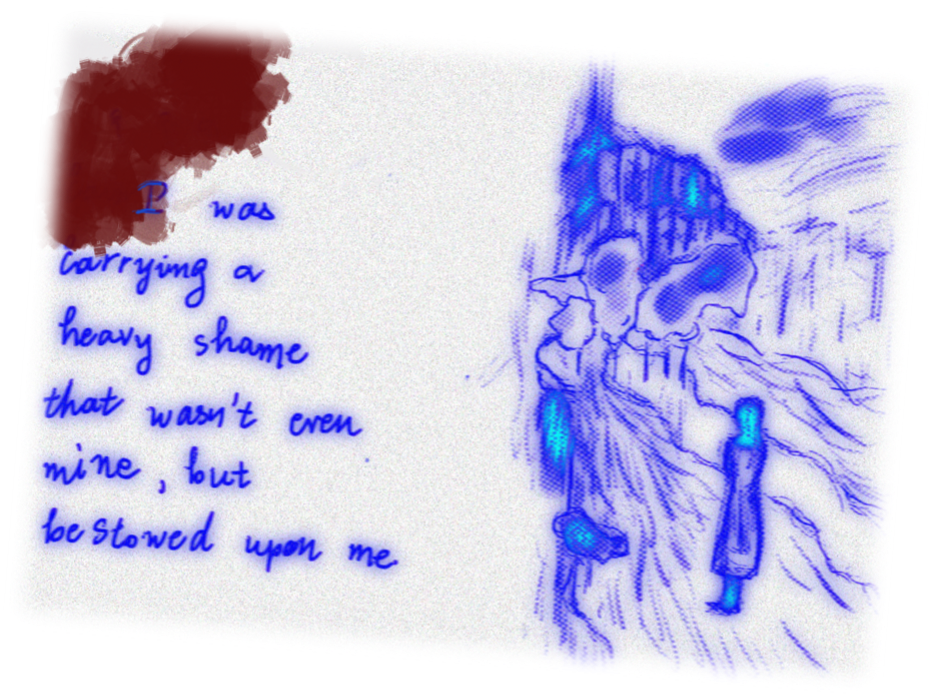 I was
carrying a
heavy shame
that wasn't even
mine, but
bestowed upon me